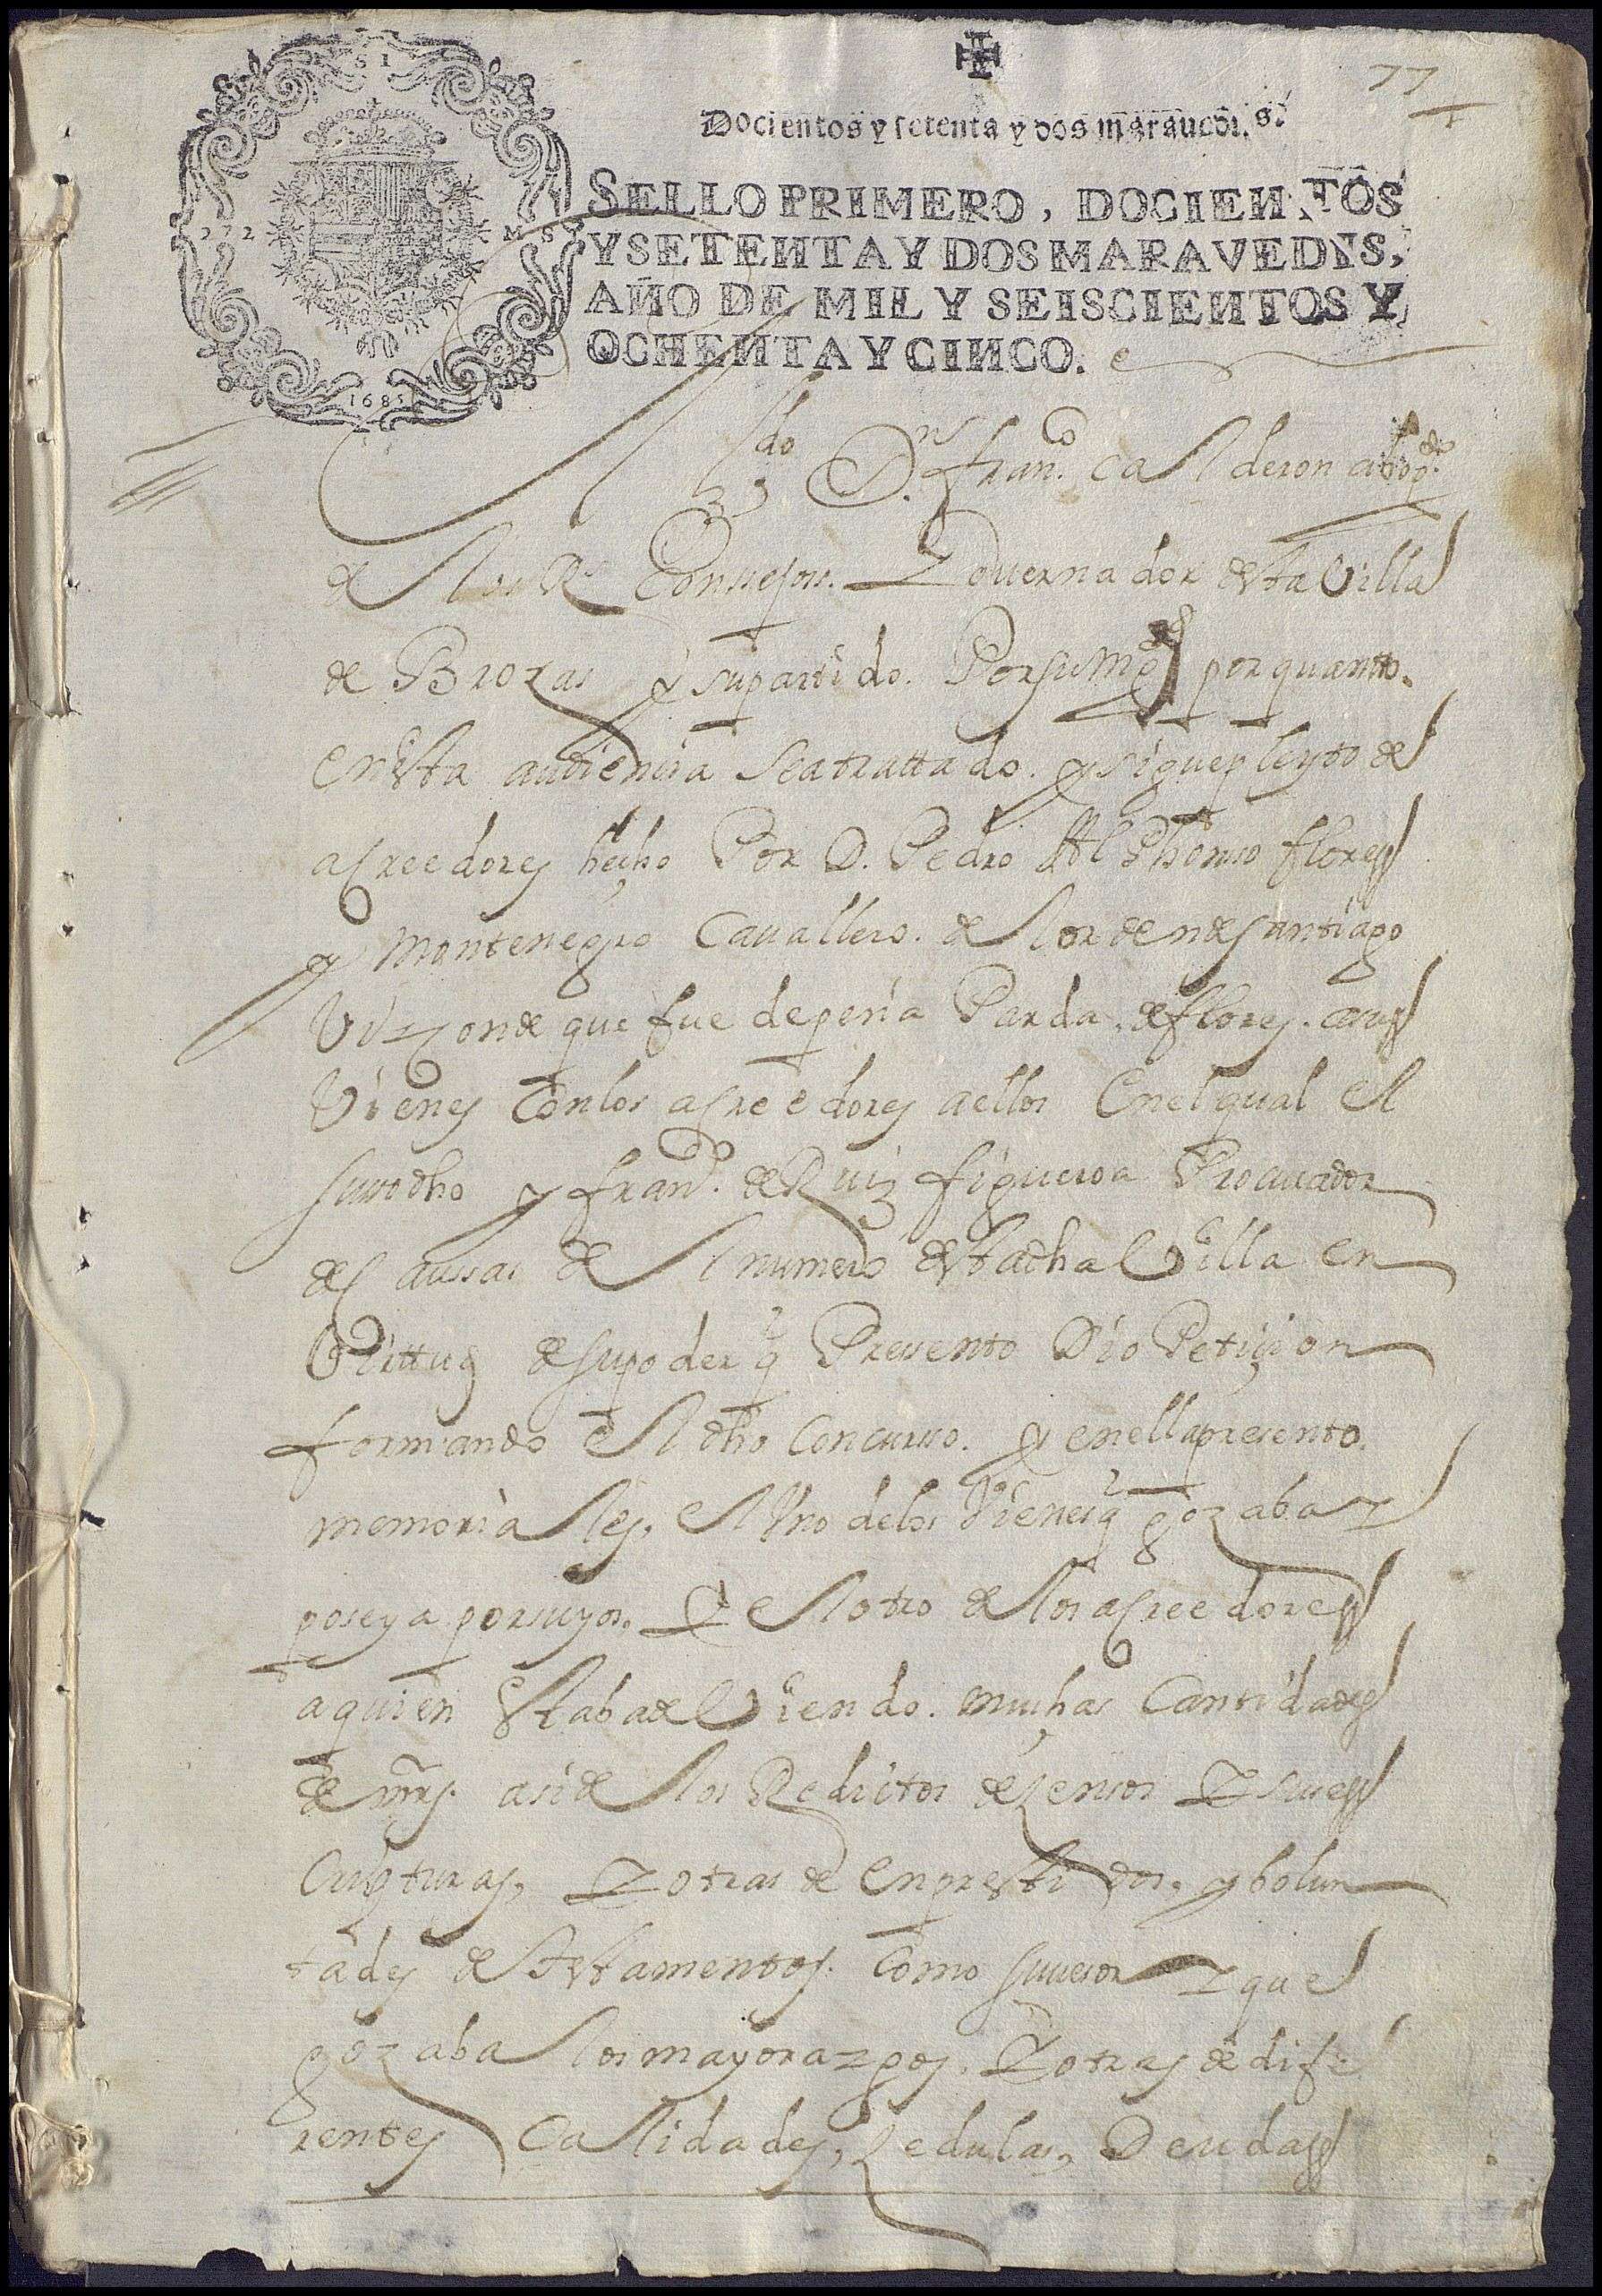 77
Docientos y setenta y dos marauedis.
SELLO PRIMERO, DOCIENTOS
Y SETENTA Y DOS MARAVEDIS,
AÑO DE MIL Y SEISCIENTOS Y
OCHENTA Y CINCO.
272 MS
1685
El lzdo Dn franco calderon abogdo
de los Rs Conssejos. Gouernador desta Villa
de Brozas y su partido. Por su Mgd por quanto.
en esta audiencia sea trattado. y sigue pleyto de
acreedores hecho Por D. Pedro Alphonso flores
y montenegro Cauallero. de lorden de santiago
Vizconde que fue de peña Parda. de flores. a sus
Vienes Con los acreedores a ellos En el qual el
suso dho y franco. de Ruiz figueroa Procurador
de caussas del numero desta dha Villa en
Virttud de su poder q Presento Dio Petiçion
formando el dho Concurso. y en ella presento.
memoriales, el Uno de los Vienes q gozaba y
poseya por suyos. Y el otro de los acreedores
a quien estaba deViendo. muchas Cantidades
de mrs. asi de los Reditos de çensos Y sus es
crigturas, Y otras de Enprestidos. y bolun
tades de testamentos. Como suçesor Y que
gozaba los mayorazgos. Y otras de dife
rentes Calidades, Zedulas, Deudas